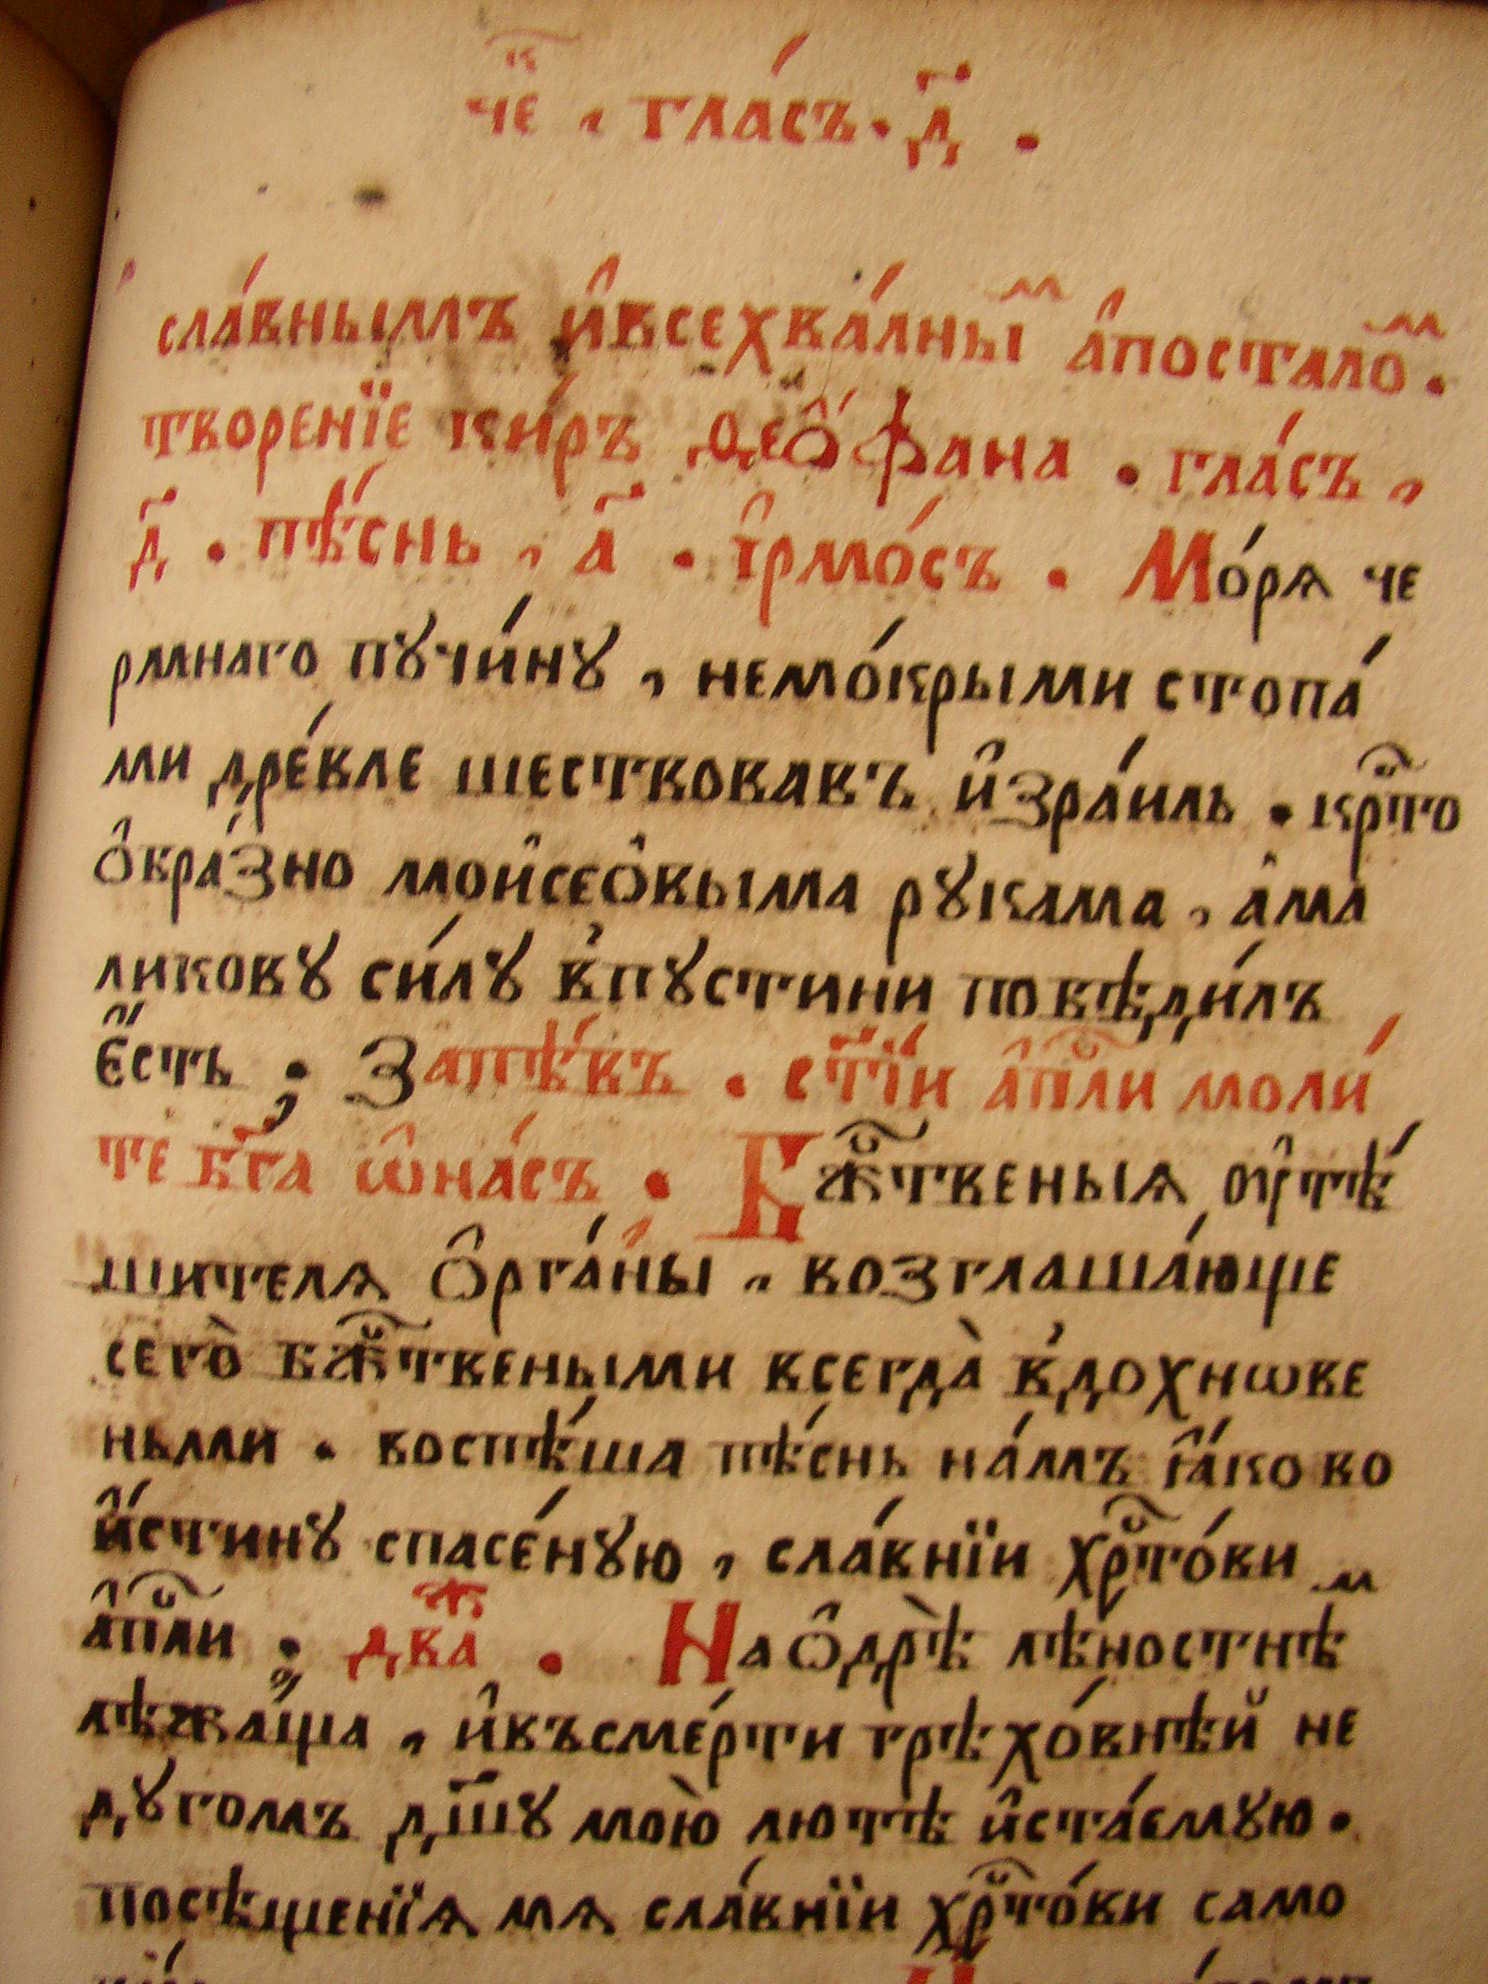 че҃к , гла́съ . д҃ .
сла́внымъ и҆всехва́лныⷨ а҆постолоⷨ .
творенїе ки́ръ ѳео҆́фана . гла́съ ,
д҃ . пѣ́снь , а҃ . і҆рмо́съ . Мо́рѧ че
рмнаго пꙋчи́нꙋ , немо́крыми стопа́
ми дре́вле шествовавъ и҆зра́иль . крⷭ҇то
о҆бра́зно мои҆сео҆выма рꙋкама , а҆ма
ликовꙋ си́лꙋ в̾пꙋстини побѣди́лъ
є҆́сть ; Запѣ́въ . ст҃їи а҆пⷭ҇ли моли́
те бг҃а ѡ҆на́съ . Бжⷭ҇твеныѧ оу҆тѣ́
шителѧ о҆рга́ны , возглаша́юще
сего̀ бжⷭ҇твеными всегда̀ в̾дохнѡве
ньми . воспѣ́ша пѣ́снь на́мъ ꙗ҆́ково
и҆́стинꙋ спасе́нꙋю , сла́внїи хрⷭ҇то́ви
а҆пⷭ҇ли ; два҃ . На о҆дрѣ̀ лѣностнѣⷨ
лѣжа́ща , и҆късме́рти грѣхо́внѣй не
дꙋгомъ дш҃ꙋ мою̀ лютѣ и҆ста́емꙋю .
посѣщенїѧ мѧ сла́внїи хрⷭ҇то́ви само